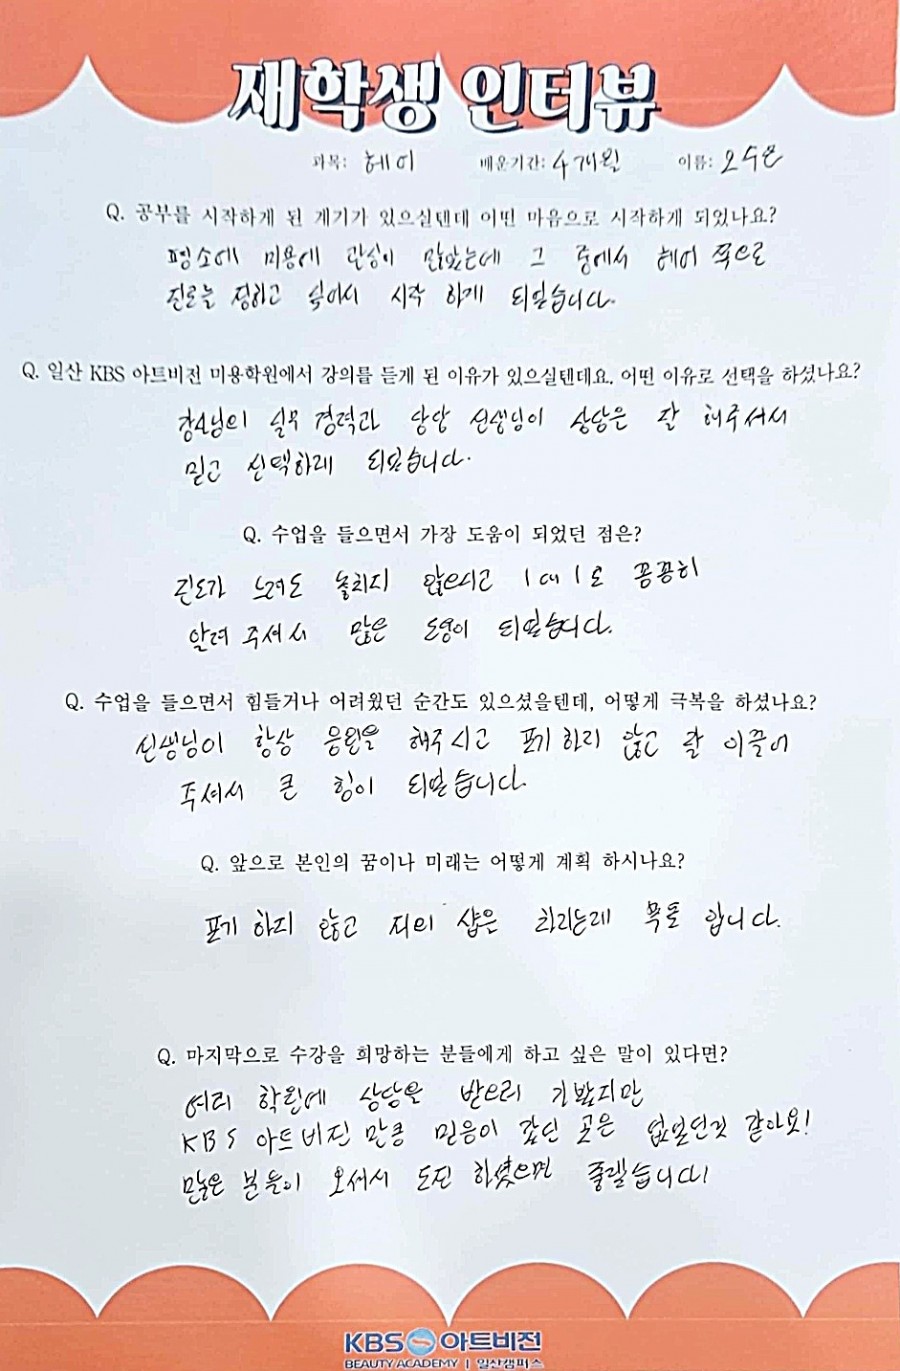 재학생 인터뷰
과목: 헤어 배운기간: 4개월 이름: 오수은
Q. 공부를 시작하게 된 계기가 있으실텐데 어떤 마음으로 시작하게 되었나요?
평소에 미용에 관심이 많았는데 그 중에서 헤어 쪽으로
진로를 정하고 싶어서 시작 하게 되었습니다.
Q. 일산 KBS 아트비전 미용학원에서 강의를 듣게 된 이유가 있으실텐데요. 어떤 이유로 선택을 하셨나요?
강사님의 실무 경력과 담당 선생님이 상담은 잘 해주셔서
믿고 선택하게 되었습니다.
Q. 수업을 들으면서 가장 도움이 되었던 점은?
진도가 느려도 놓치지 않으시고 1대1로 꼼꼼히
알려 주셔서 많은 도움이 되었습니다.
Q. 수업을 들으면서 힘들거나 어려웠던 순간도 있으셨을텐데, 어떻게 극복을 하셨나요?
선생님이 항상 응원을 해주시고 포기하지 않고 잘 이끌어
주셔서 큰 힘이 되었습니다.
Q. 앞으로 본인의 꿈이나 미래는 어떻게 계획 하시나요?
포기 하지 않고 저의 샵은 차리는게 목표 입니다.
Q. 마지막으로 수강을 희망하는 분들에게 하고 싶은 말이 있다면?
여러 학원에 상담을 받으러 가봤지만
KBS 아트비전 만큼 믿음이 갔던 곳은 없었던것 같아요!
많은 분들이 오셔서 도전 하셨으면 좋겠습니다!
KBS 아트비전
BEAUTY ACADEMY | 일산캠퍼스